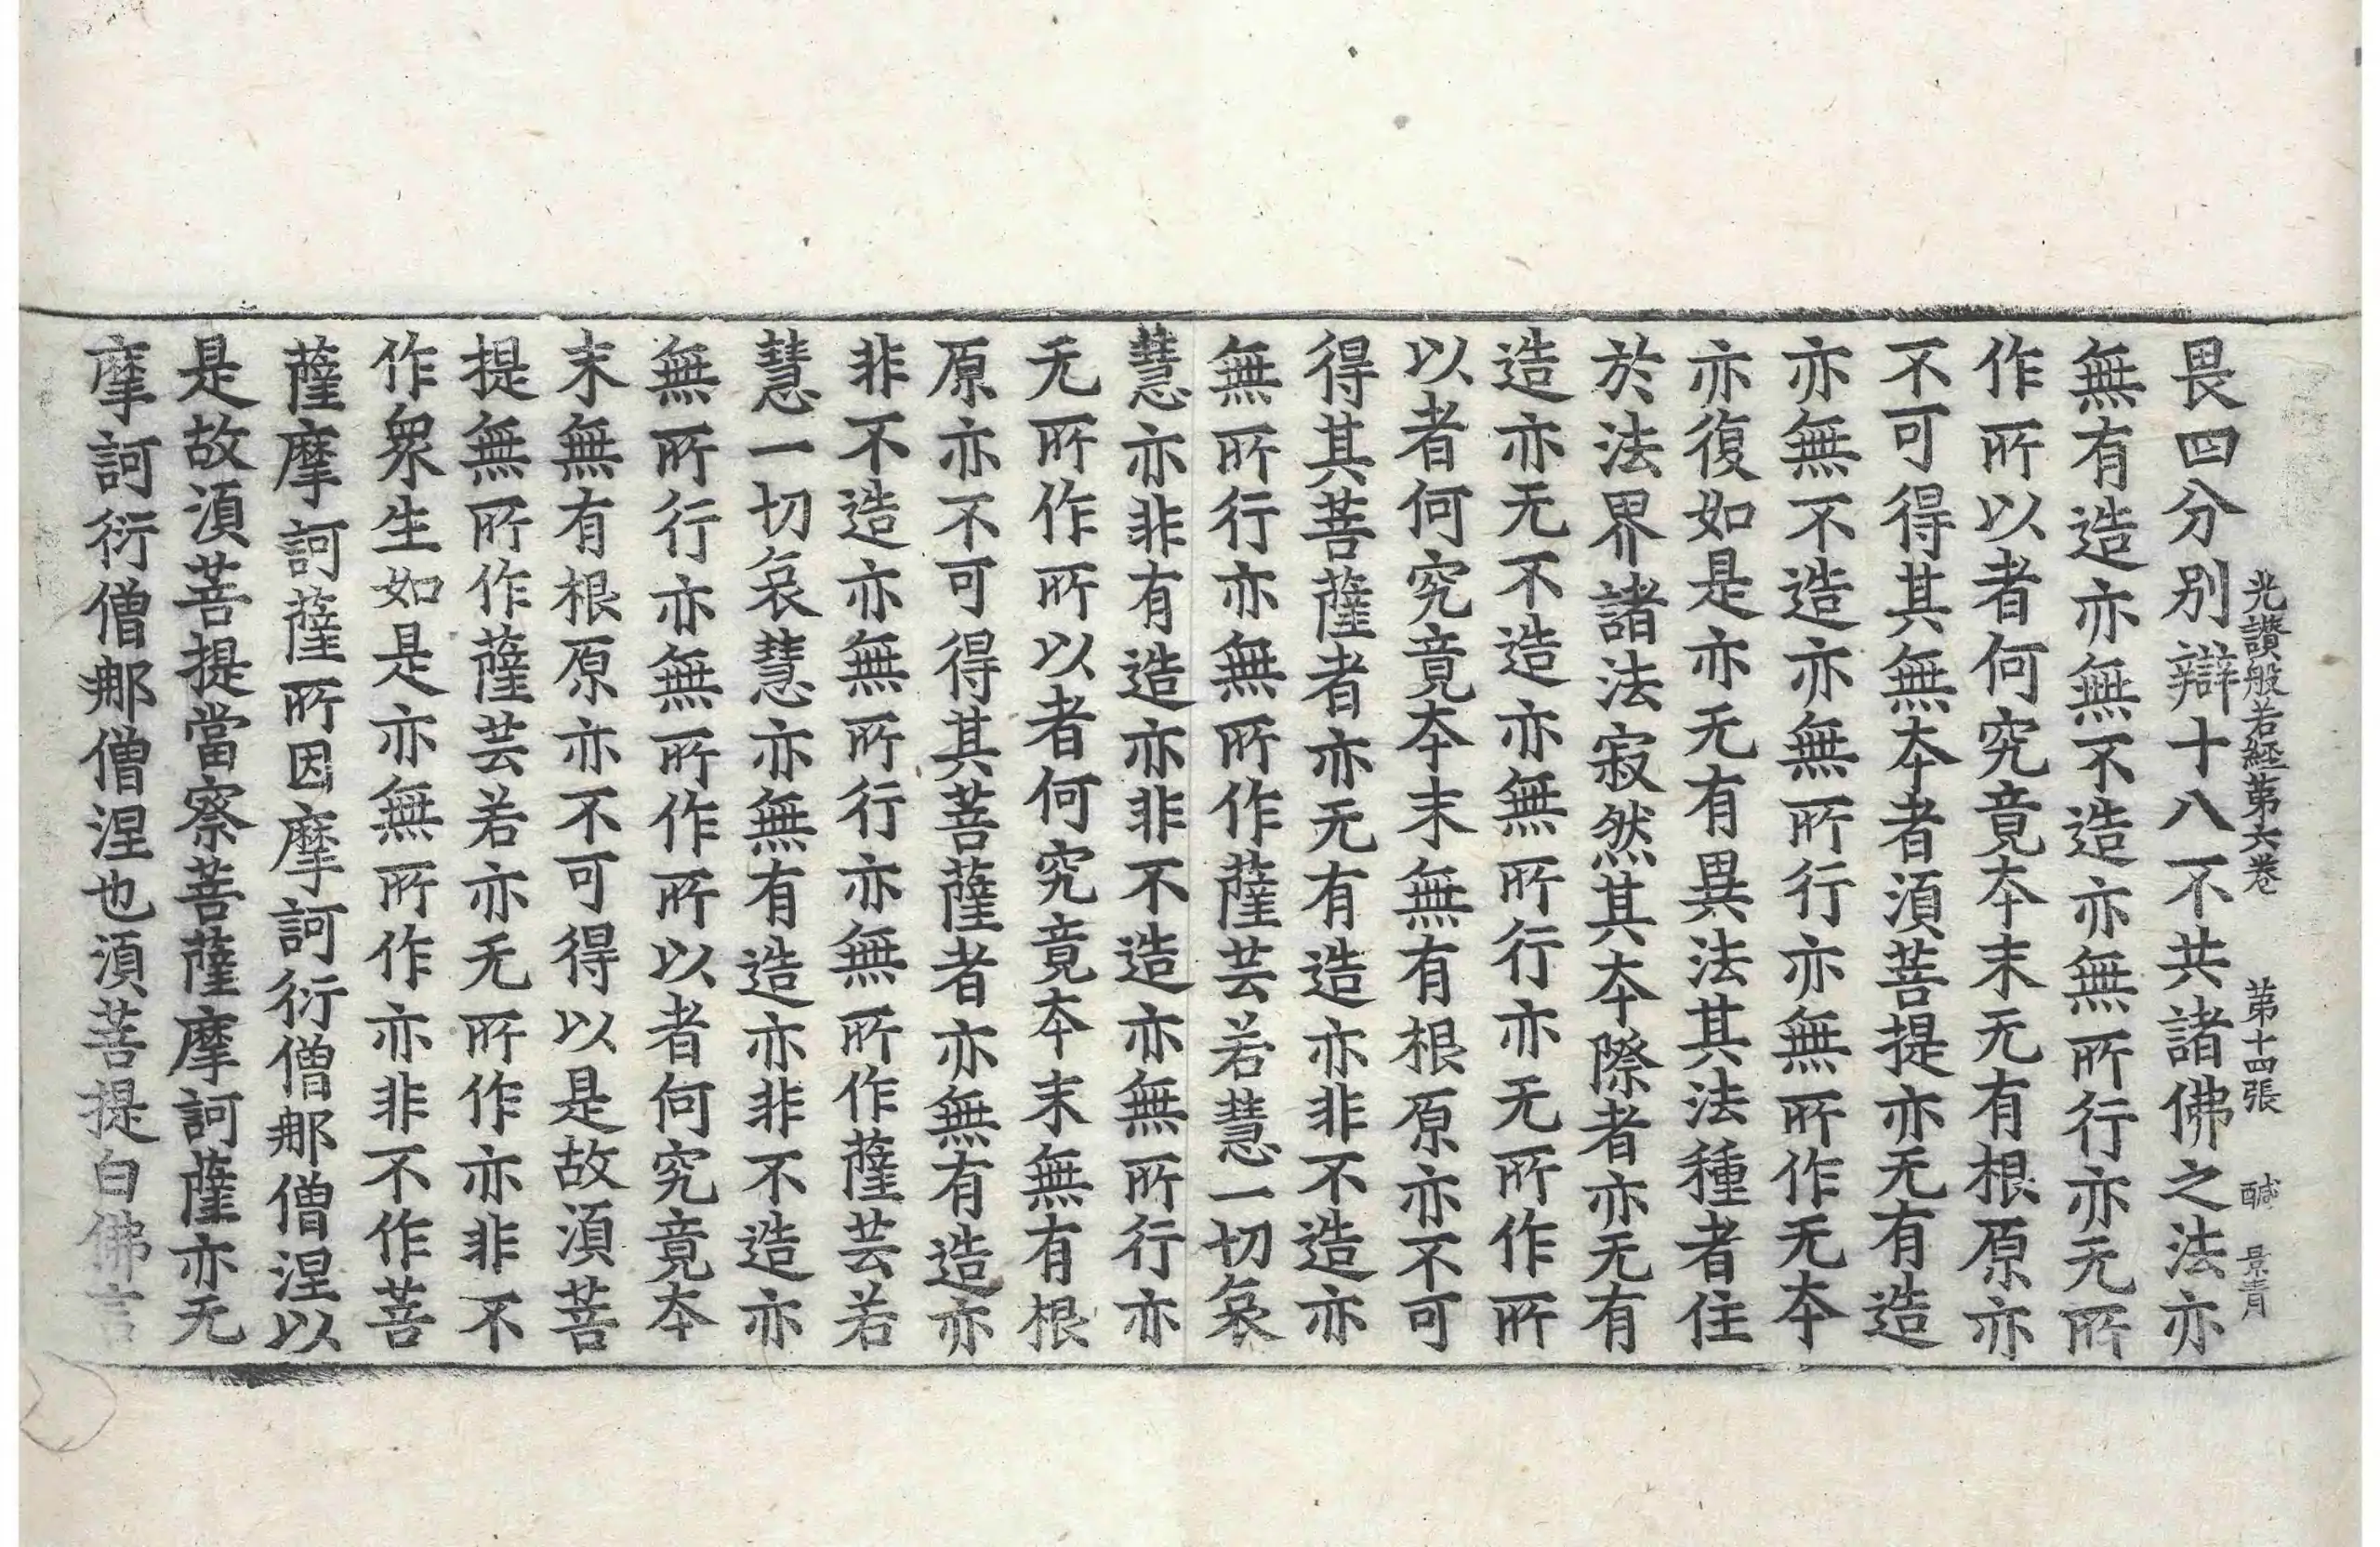 光讃般若經第六卷 第十四張 鹹 景青
畏四分別辯十八不共諸佛之法亦
無有造亦無不造亦無所行亦无所
作所以者何究竟本末无有根原亦
不可得其無本者須菩提亦无有造
亦無不造亦無所行亦無所作无本
亦復如是亦无有異法其法種者住
於法界諸法寂然其本際者亦无有
造亦无不造亦無所行亦无所作所
以者何究竟本末無有根原亦不可
得其菩薩者亦无有造亦非不造亦
無所行亦無所作薩芸若慧一切哀
慧亦非有造亦非不造亦無所行亦
无所作所以者何究竟本末無有根
原亦不可得其菩薩者亦無有造亦
非不造亦無所行亦無所作薩芸若
慧一切哀慧亦無有造亦非不造亦
無所行亦無所作所以者何究竟本
末無有根原亦不可得以是故須菩
提無所作薩芸若亦无所作亦非不
作衆生如是亦無所作亦非不作菩
薩摩訶薩所因摩訶衍僧那僧涅以
是故須菩提當察菩薩摩訶薩亦无
摩訶衍僧那僧涅也須菩提白佛言